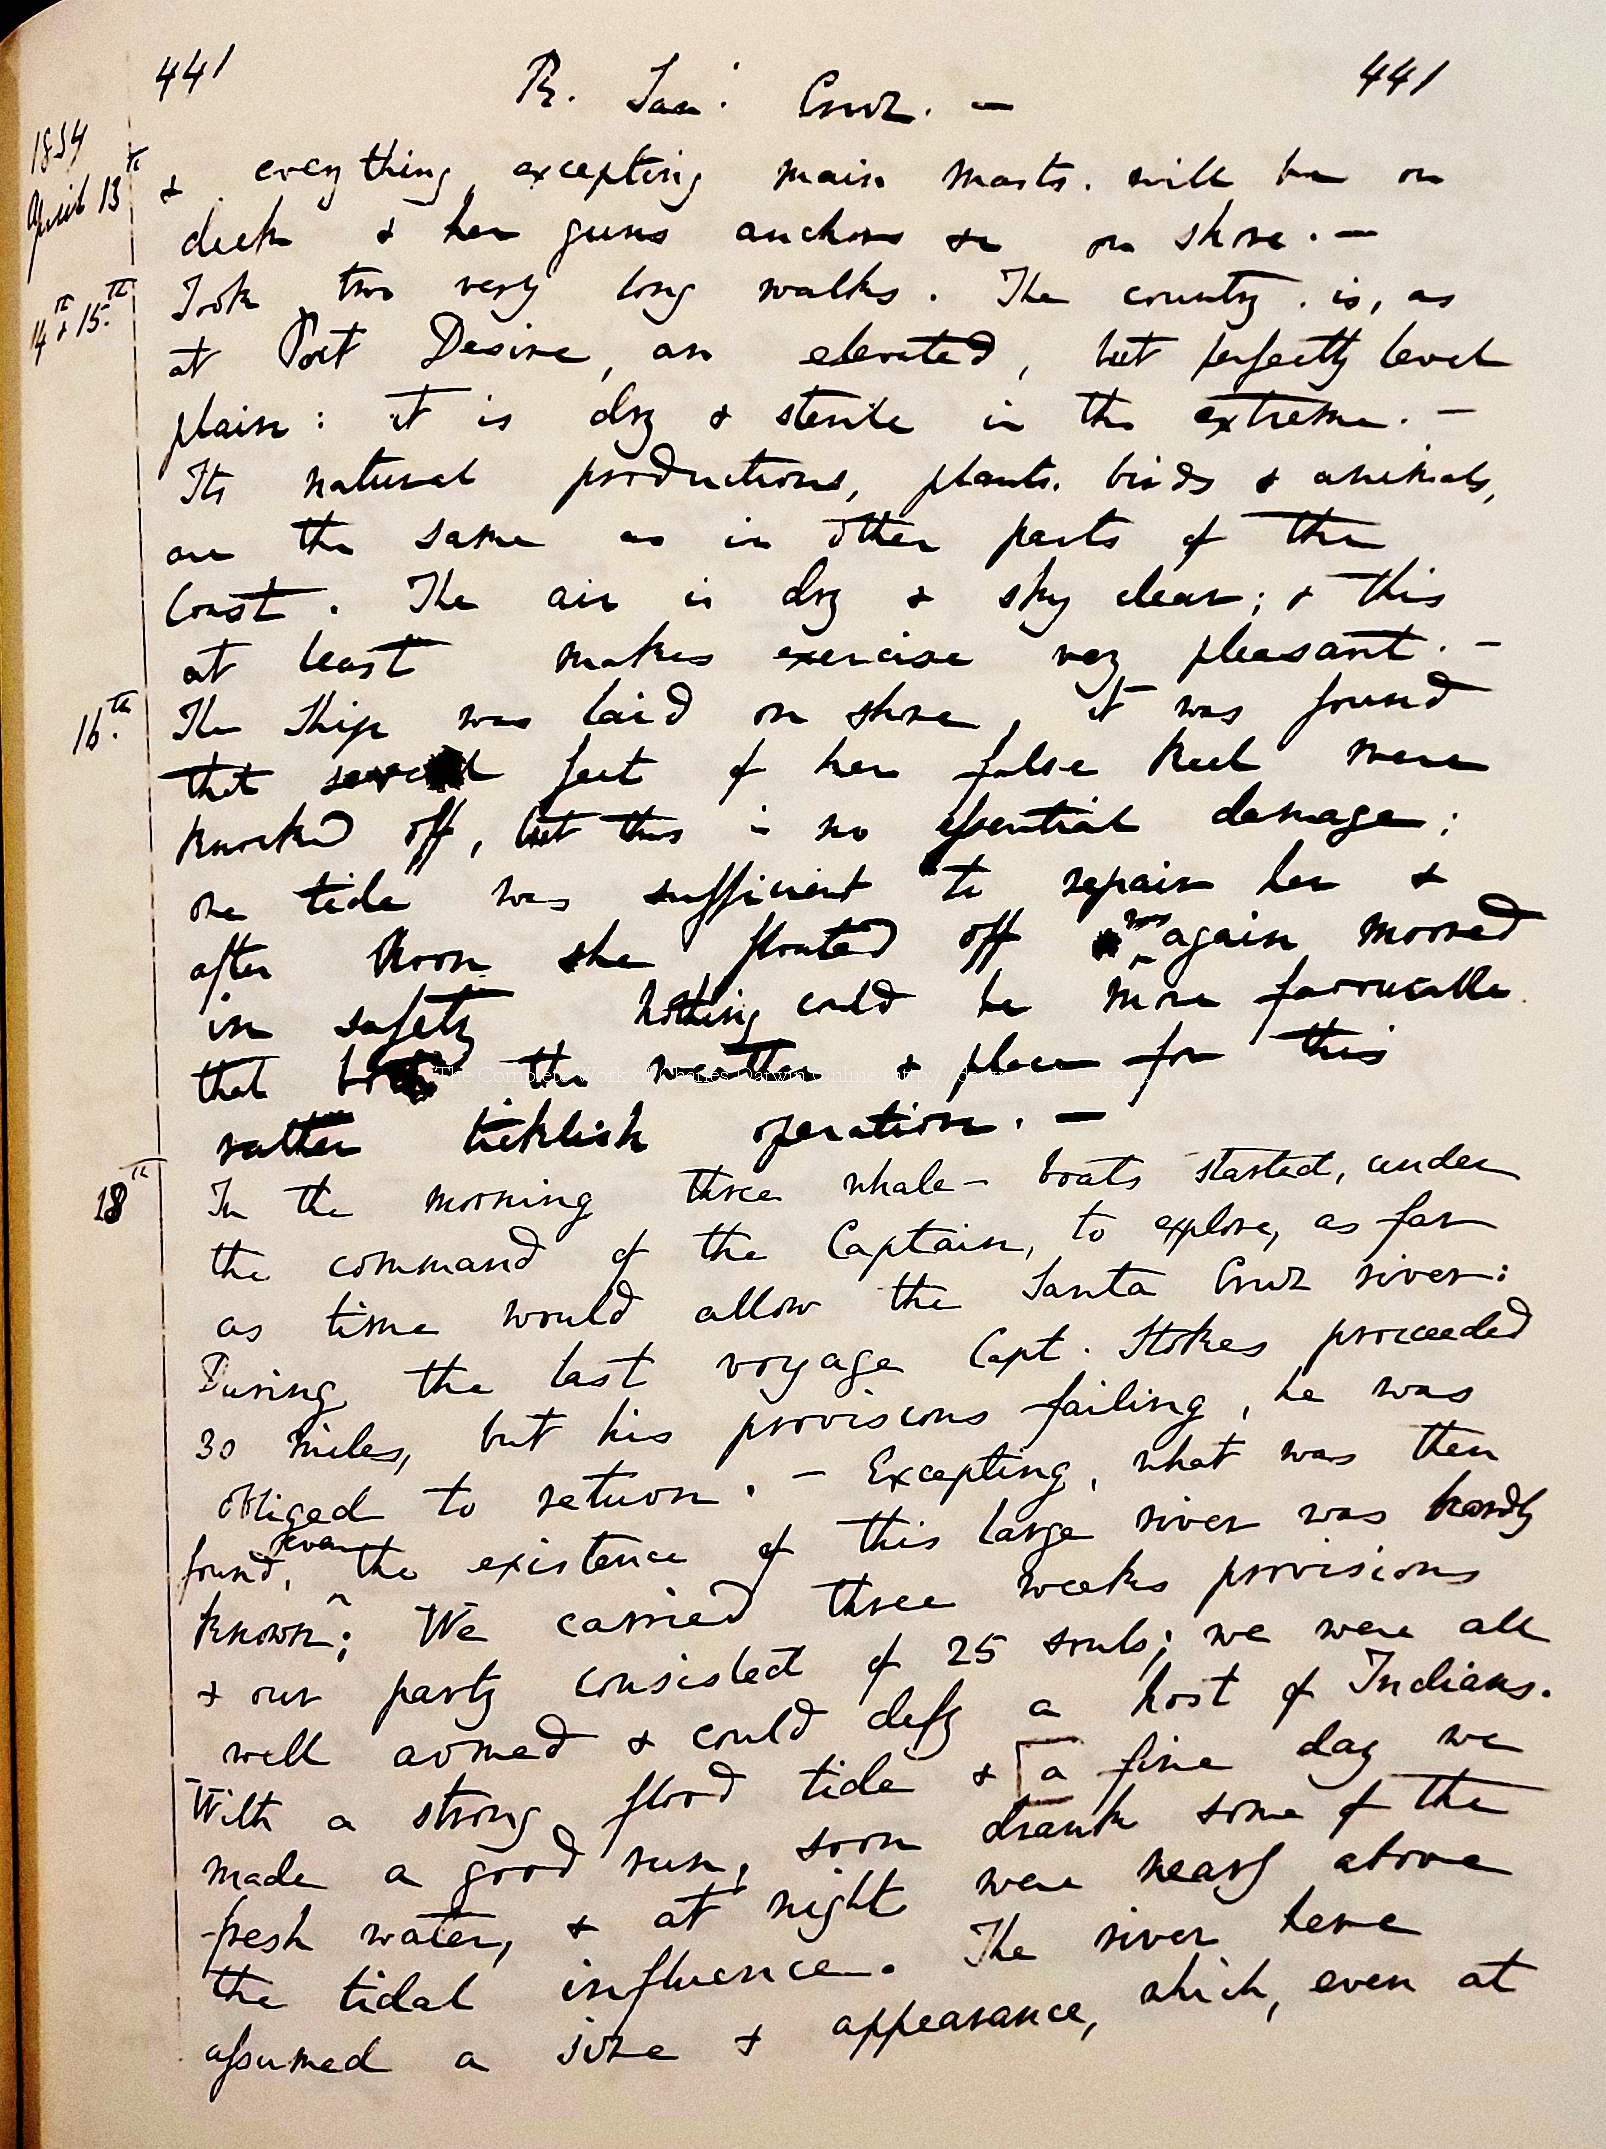 441 R. San: Cruz. — 441
1834
April 13th & everything excepting main masts. will be on
deck & her guns anchors &c on shore. —
14th & 15th Took two very long walks. The country is, as
at Port Desire, an elevated, but perfectly level
plain: it is dry & sterile in the extreme. —
Its natural productions, plants. birds & animals,
are the same as in other parts of the
Coast. The air is dry & sky clear; & this
at least makes exercise very pleasant. —
16th The Ship was laid on shore, it was found
that several feet of her false keel were
knocked off, but this is no essential damage;
one tide was sufficient to repair her &
after noon she floated off & was again moored
in safety nothing could be more favourable
than both the weather & place for this
rather ticklish operation. —
18th In the morning three whale-boats started, under
the command of the Captain, to explore, as far
as time would allow the Santa Cruz river:
During the last voyage Capt. Stokes proceeded
30 miles, but his provisions failing, he was
obliged to return. — Excepting, what was then
found, the existence of this large river was hardly
even
known; We carried three weeks provisions
& our party consisted of 25 souls; we were all
well armed & could defy a host of Indians.
With a strong flood tide & [a fine day we
made a good run, soon drank some of the
fresh water, & at night were nearly above
the tidal influence. The river here
assumed a size & appearance, which, even at
The Complete Work of Charles Darwin Online